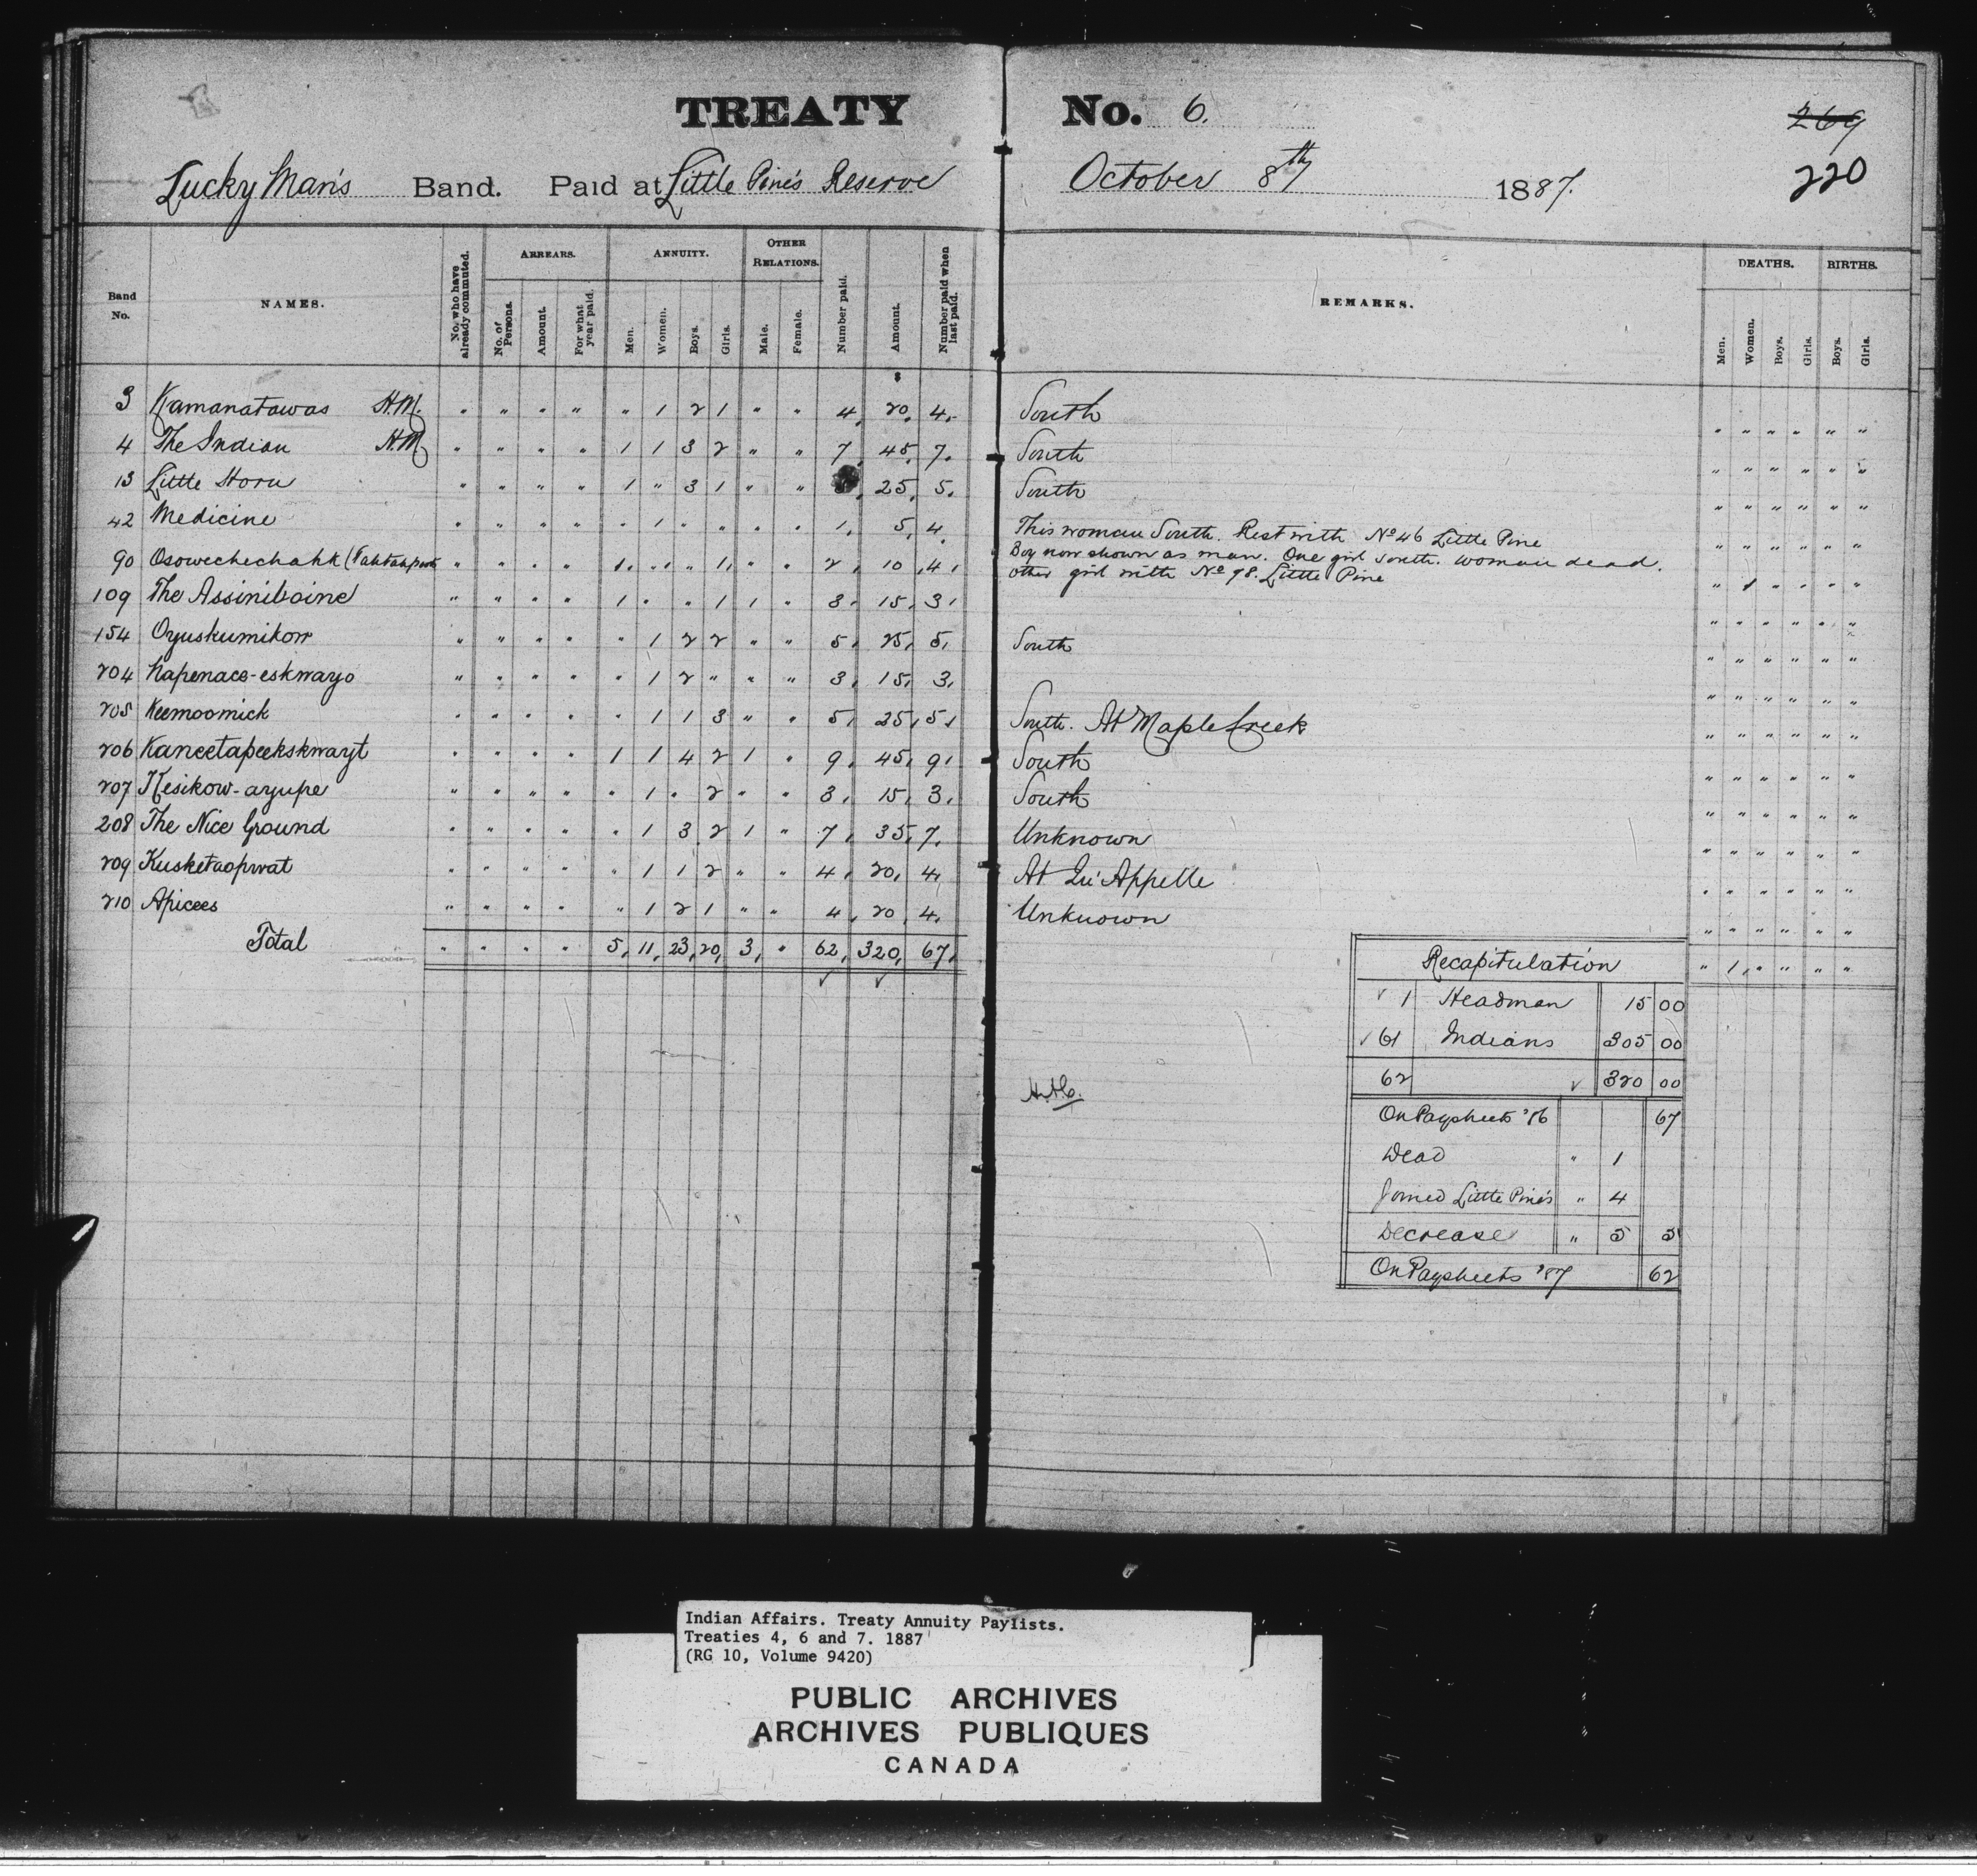 TREATY No. 6.
269
220
Lucky Man's Band. Paid at Little Pine's Reserve October 8th 1887.
Band No. NAMES. No. who have already commuted. ARREARS. No. of Persons. Amount. For what year paid. ANNUITY. Men. Women. Boys. Girls. OTHER RELATIONS. Male. Female. Number paid. Amount. Number paid when last paid. REMARKS. DEATHS. Men. Women. Boys. Girls. BIRTHS. Boys. Girls.
$
3 Kamanatawas H.M. " " " " " 1 2 1 " " 4. 20. 4. South " " " " " "
4 The Indian H.M " " " " 1 1 3 2 " " 7. 45. 7. South " " " " " "
13 Little Horn " " " " 1 " 3 1 " " 25. 5. South " " " " " "
42 Medicine " " " " " 1 " " " " 1. 5. 4. This woman South. Rest with No 46 Little Pine " " " " " "
90 Osowechechahk " " " " 1. " " 1. " " 2. 10. 4. Boy now shown as man. One girl south. Woman dead. " 1 " " " "
other girl with No 98. Little Pine
109 The Assiniboine " " " " 1 " " 1 1 " 3. 15. 3. " " " " " "
154 Oyuskumikow " " " " " 1 2 2 " " 5. 25. 5. South " " " " " "
204 Napenace-eskwayo " " " " " 1 2 " " " 3. 15. 3. " " " " " "
205 Keemoomick " " " " " 1 1 3 " " 5. 25. 5. South. At Maple Creek " " " " " "
206 Kaneetapeekskwayt " " " " 1 1 4 2 1 " 9. 45. 9. South " " " " " "
207 Kesikow-ayupe " " " " " 1 " 2 " " 3. 15. 3. South " " " " " "
208 The Nice Ground " " " " " 1 3 2 1 " 7. 35. 7. Unknown " " " " " "
209 Kusketaopwat " " " " " 1 1 2 " " 4. 20. 4. At Qu'Appelle " " " " " "
210 Apicees " " " " " 1 2 1 " " 4. 20. 4. Unknown " " " " " "
Total " " " " 5. 11. 23. 20. 3. " 62. 320. 67. " 1. " " " "
✓ ✓
Recapitulation
✓ 1 Headman 15 00
✓ 61 Indians 305 00
62 ✓ 320 00
On Paysheets '86 67
Dead " 1
Joined Little Pine's " 4
Decrease " 5 5
On Paysheets '87 62
Indian Affairs. Treaty Annuity Paylists.
Treaties 4, 6 and 7. 1887
(RG 10, Volume 9420)
PUBLIC ARCHIVES
ARCHIVES PUBLIQUES
CANADA